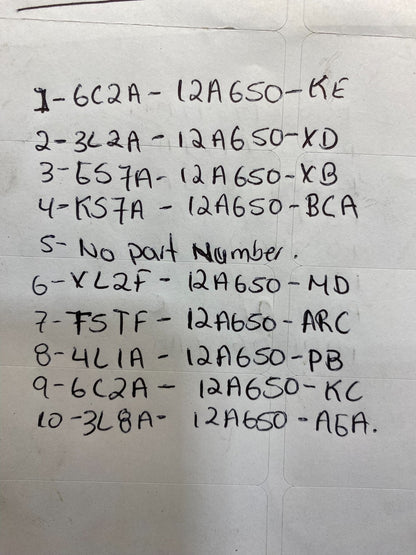 1-6C2A-12A650-KE
2-3L2A-12A650-XD
3-6S7A-12A650-XB
4-KS7A-12A650-BCA
5- No part Number.
6-XL2F-12A650-MD
7-FSTF-12A650-ARC
8-4L1A-12A650-PB
9-6C2A-12A650-KC
10-3L8A-12A650-AGA.